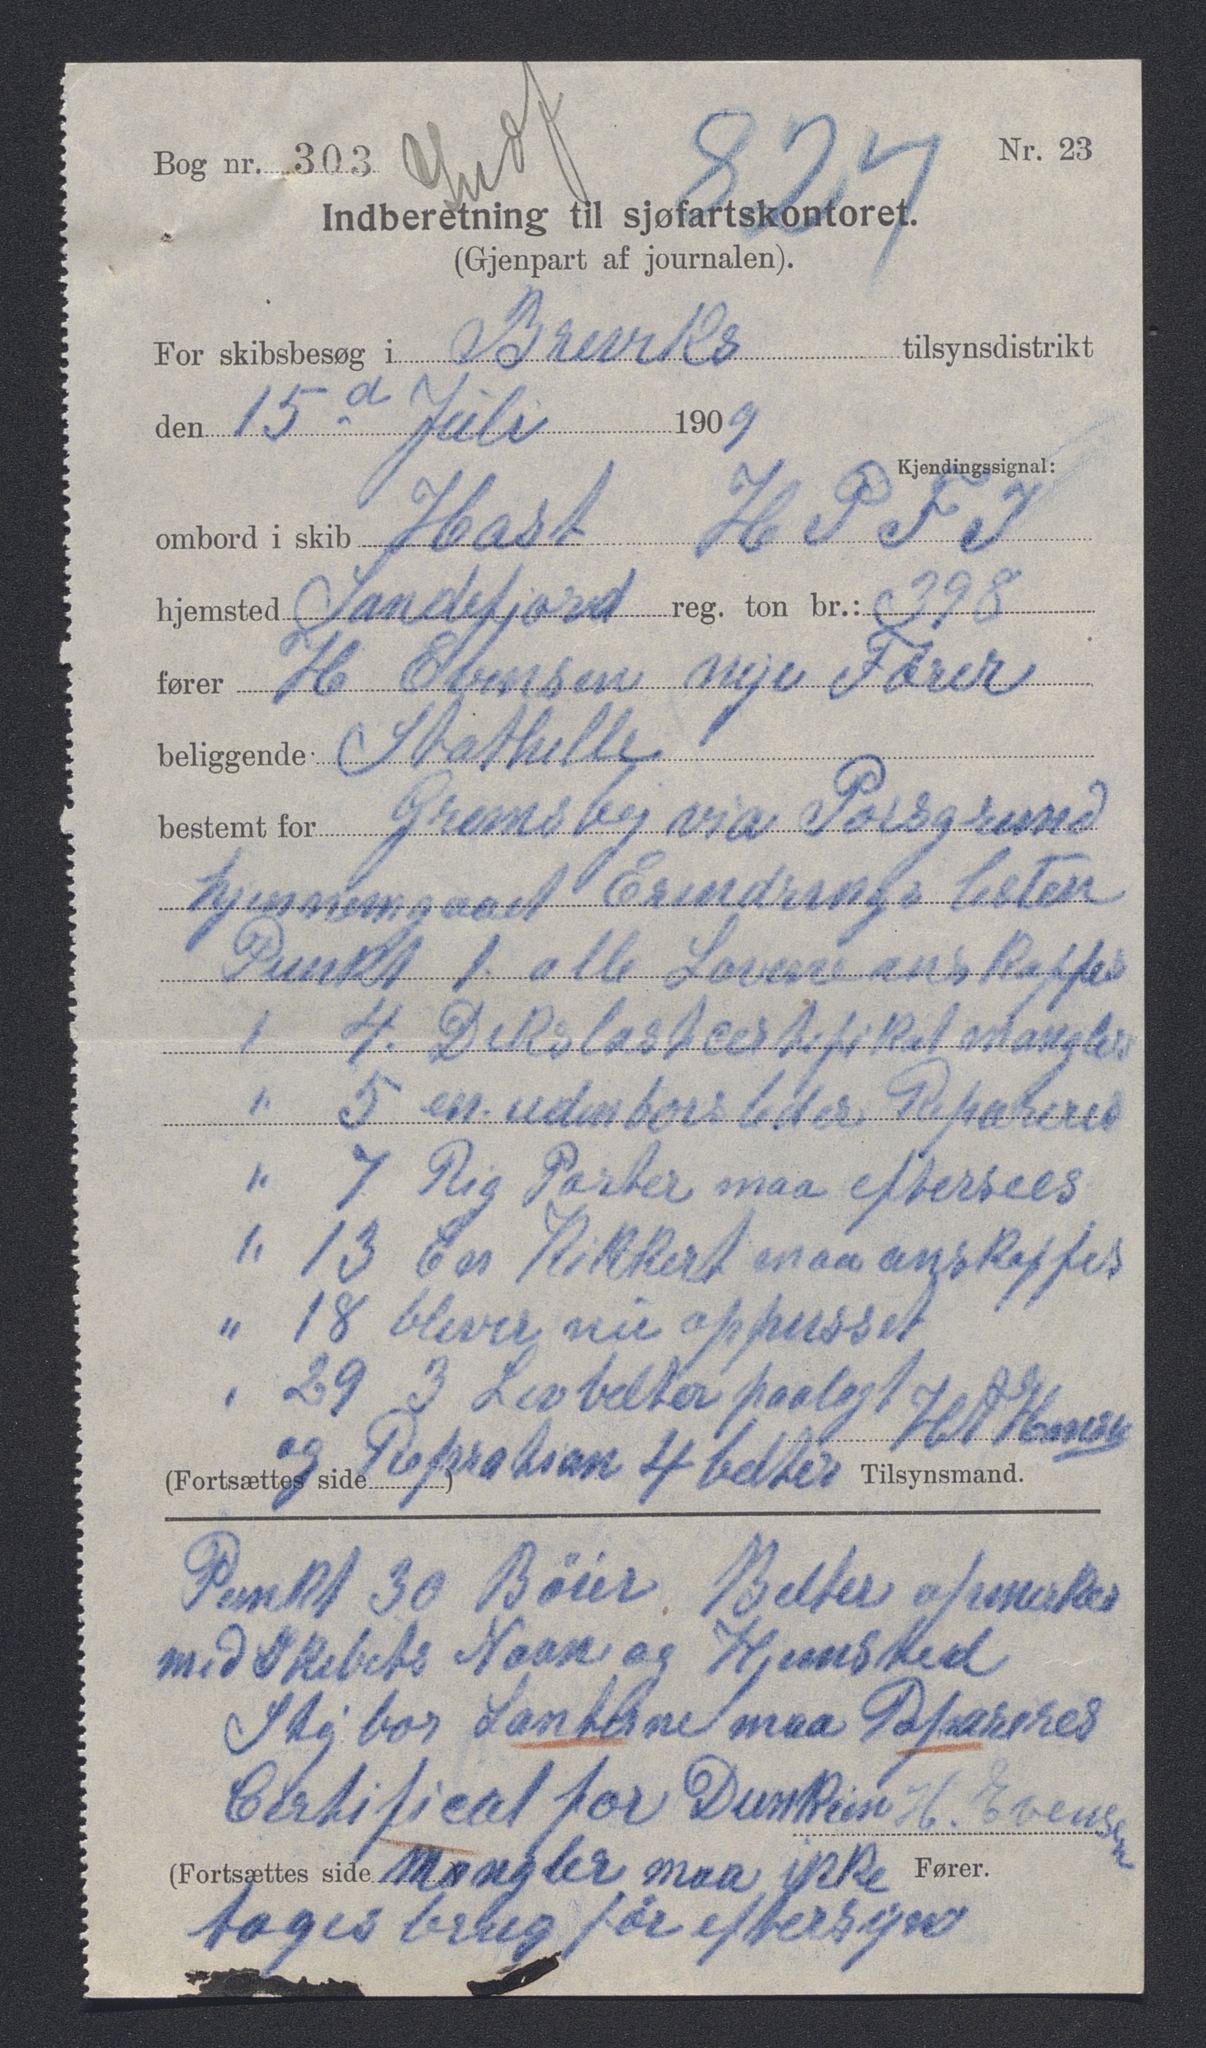 Bog nr. 303 Indf 827 Nr. 23
Indberetning til sjøfartskontoret.
(Gjenpart af journalen).
For skibsbesøg i Breviks tilsynsdistrikt
den 15 d Juli 1909
Kjendingssignal:
ombord i skib Hast H P F J
hjemsted Sandefjord reg. ton br.: 398
fører H Evensen nye Fører
beliggende Stathelle
bestemt for Gremsby via Porsgrund
hjennemgaaet Erindrings listen
Punkt 1. alle Lovene anskaffes
" 4. Dekslastcertifikat mangler
" 5 en udenbors leder Repareres
" 7 Rig Porter maa eftersees
" 13 En Kikkert maa anskaffes
" 18 blever nu oppusset
" 29 3 Levbelter paalagt
og Repration 4 belter
(Fortsættes side ) Tilsynsmand.
Punkt 30 Böier Belter opmerkes
med Skibets Navn og Hjemsted
Stÿbor Lanterne maa Repareres
Certifical for Dunkein H. Evensen
(Fortsættes side mangler maa ikke Fører.
tages brug før eftersyn